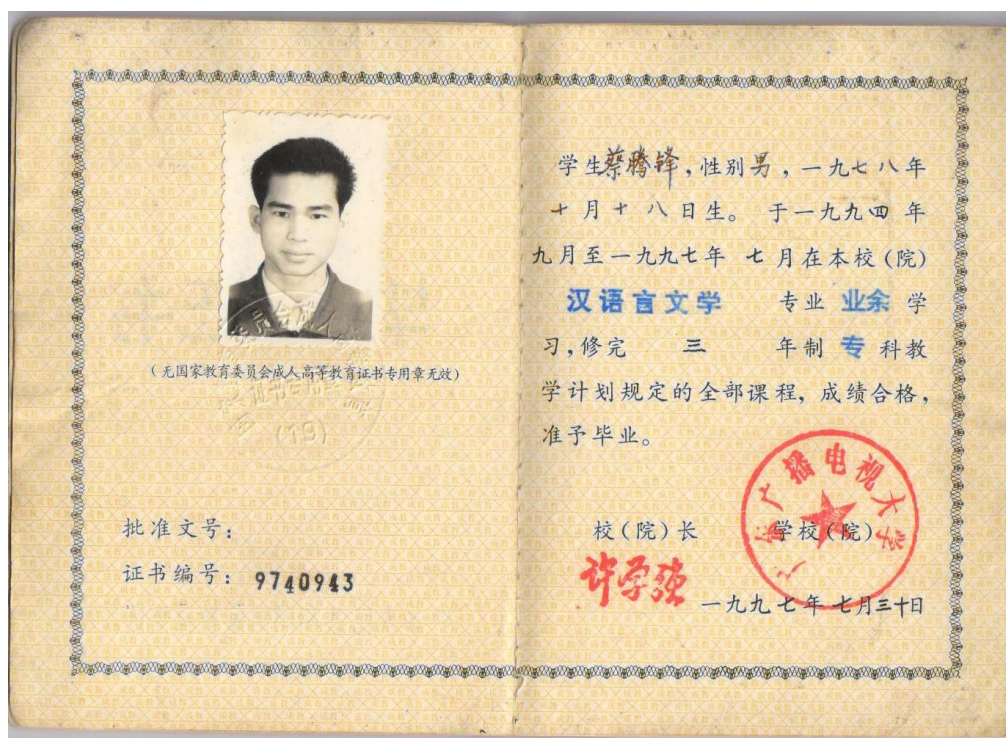 (无国家教育委员会成人高等教育证书专用章无效)
(19)
批准文号:
证书编号: 9740943
学生蔡腾锋,性别男,一九七八年
十月十八日生。于一九九四年
九月至一九九七年 七月在本校(院)
汉语言文学 专业 业余 学
习,修完 三 年制 专 科教
学计划规定的全部课程,成绩合格,
准予毕业。
广东广播电视大学
校(院)长 学校(院)
许学强
一九九七年七月三十日